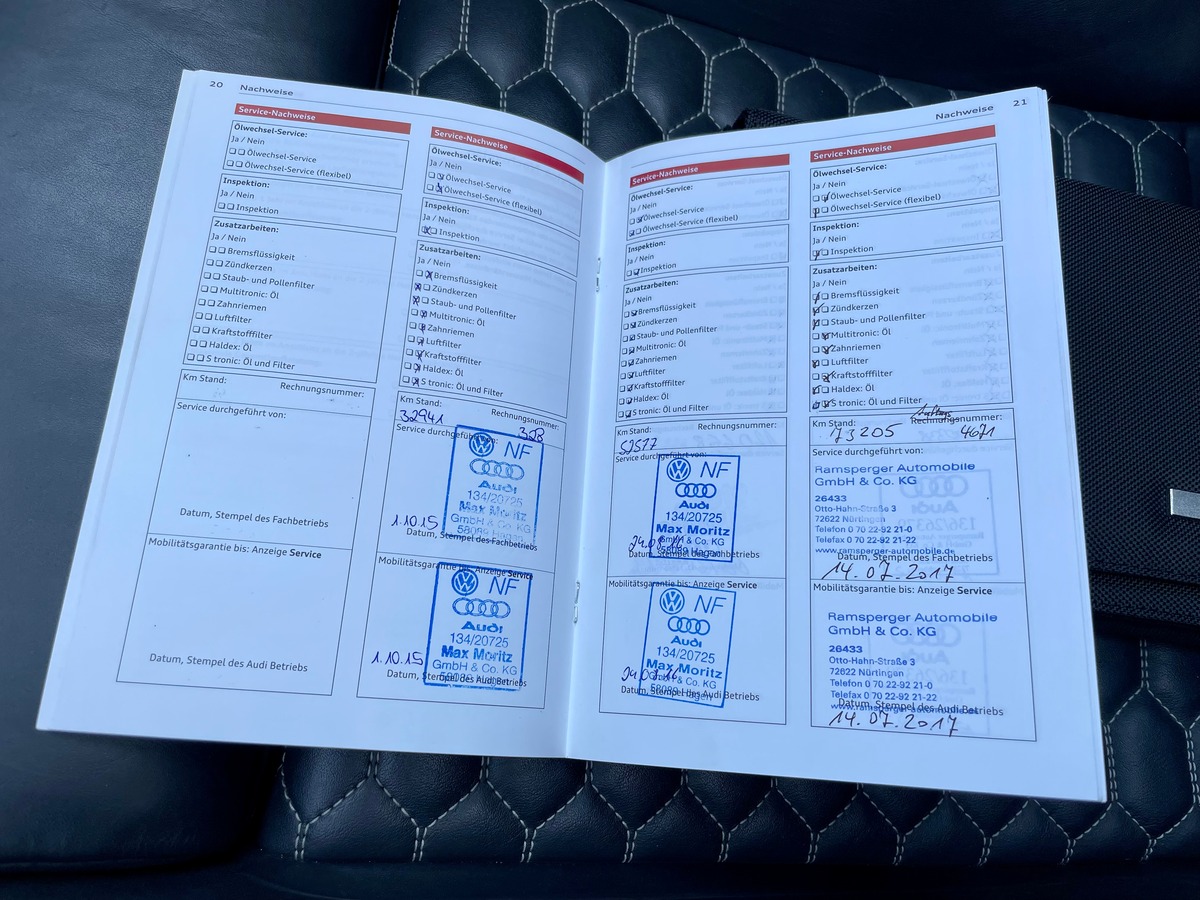 20
Nachweise
Service-Nachweise
Ölwechsel-Service:
Ja / Nein
Ölwechsel-Service
Ölwechsel-Service (flexibel)
Inspektion:
Ja / Nein
Inspektion
Zusatzarbeiten:
Ja / Nein
Bremsflüssigkeit
Zündkerzen
Staub- und Pollenfilter
Multitronic: Öl
Zahnriemen
Luftfilter
Kraftstofffilter
Haldex: Öl
S tronic: Öl und Filter
Km Stand:
Rechnungsnummer:
Service durchgeführt von:
Datum, Stempel des Fachbetriebs
Mobilitätsgarantie bis: Anzeige Service
Datum, Stempel des Audi Betriebs
Service-Nachweise
Ölwechsel-Service:
Ja / Nein
Ölwechsel-Service
Ölwechsel-Service (flexibel)
Inspektion:
Ja / Nein
Inspektion
Zusatzarbeiten:
Ja / Nein
Bremsflüssigkeit
Zündkerzen
Staub- und Pollenfilter
Multitronic: Öl
Zahnriemen
Luftfilter
Kraftstofffilter
Haldex: Öl
S tronic: Öl und Filter
Km Stand:
Rechnungsnummer:
32941
328
Service durchgeführt von:
NF
Audi
134/20725
Max Moritz
GmbH & Co. KG
58089 Hagen
1.10.15
Datum, Stempel des Fachbetriebs
Mobilitätsgarantie bis: Anzeige Service
NF
Audi
134/20725
Max Moritz
GmbH & Co. KG
58089 Hagen
1.10.15
Datum, Stempel des Audi Betriebs
Nachweise
21
Service-Nachweise
Ölwechsel-Service:
Ja / Nein
Ölwechsel-Service
Ölwechsel-Service (flexibel)
Inspektion:
Ja / Nein
Inspektion
Zusatzarbeiten:
Ja / Nein
Bremsflüssigkeit
Zündkerzen
Staub- und Pollenfilter
Multitronic: Öl
Zahnriemen
Luftfilter
Kraftstofffilter
Haldex: Öl
S tronic: Öl und Filter
Km Stand:
Rechnungsnummer:
52577
Service durchgeführt von:
NF
Audi
134/20725
Max Moritz
GmbH & Co. KG
58089 Hagen
Datum, Stempel des Fachbetriebs
Mobilitätsgarantie bis: Anzeige Service
NF
Audi
134/20725
Max Moritz
GmbH & Co. KG
58089 Hagen
Datum, Stempel des Audi Betriebs
Service-Nachweise
Ölwechsel-Service:
Ja / Nein
Ölwechsel-Service
Ölwechsel-Service (flexibel)
Inspektion:
Ja / Nein
Inspektion
Zusatzarbeiten:
Ja / Nein
Bremsflüssigkeit
Zündkerzen
Staub- und Pollenfilter
Multitronic: Öl
Zahnriemen
Luftfilter
Kraftstofffilter
Haldex: Öl
S tronic: Öl und Filter
Auftrag
Km Stand:
Rechnungsnummer:
73205
4671
Service durchgeführt von:
Ramsperger Automobile
GmbH & Co. KG
26433
Otto-Hahn-Straße 3
72622 Nürtingen
Telefon 0 70 22-92 21-0
Telefax 0 70 22-92 21-22
www.ramsperger-automobile.de
Datum, Stempel des Fachbetriebs
14.07.2017
Mobilitätsgarantie bis: Anzeige Service
Ramsperger Automobile
GmbH & Co. KG
26433
Otto-Hahn-Straße 3
72622 Nürtingen
Telefon 0 70 22-92 21-0
Telefax 0 70 22-92 21-22
www.ramsperger-automobile.de
Datum, Stempel des Audi Betriebs
14.07.2017